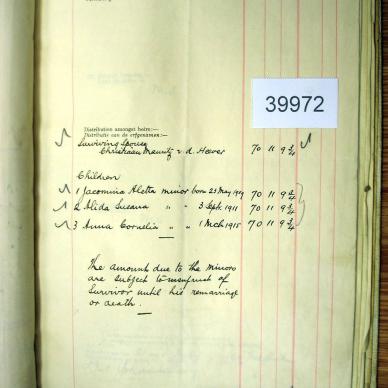 39972
Distribution amongst heirs:—
Distributie aan de erfgenamen:—
Surviving Spouse
Christiaan Mauritz v. d. Hoever 70 11 9 3/4
Children
1 Jacomina Aletta minor born 23 May 1909 70 11 9 3/4
2 Alida Susara " " 3 Sept. 1911 70 11 9 3/4
3 Anna Cornelia " " 1 Mch 1915 70 11 9 3/4
The amount due to the minors
are subject to usufruct of
Survivor until his remarriage
or death.